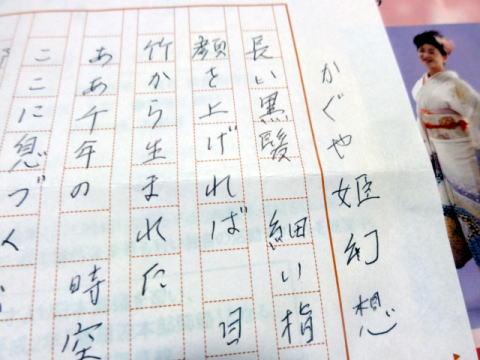 かぐや姫幻想
長い黒髪 細い指
顔を上げれば 目
竹から生まれた
ああ千年の 時空
ここに息づく